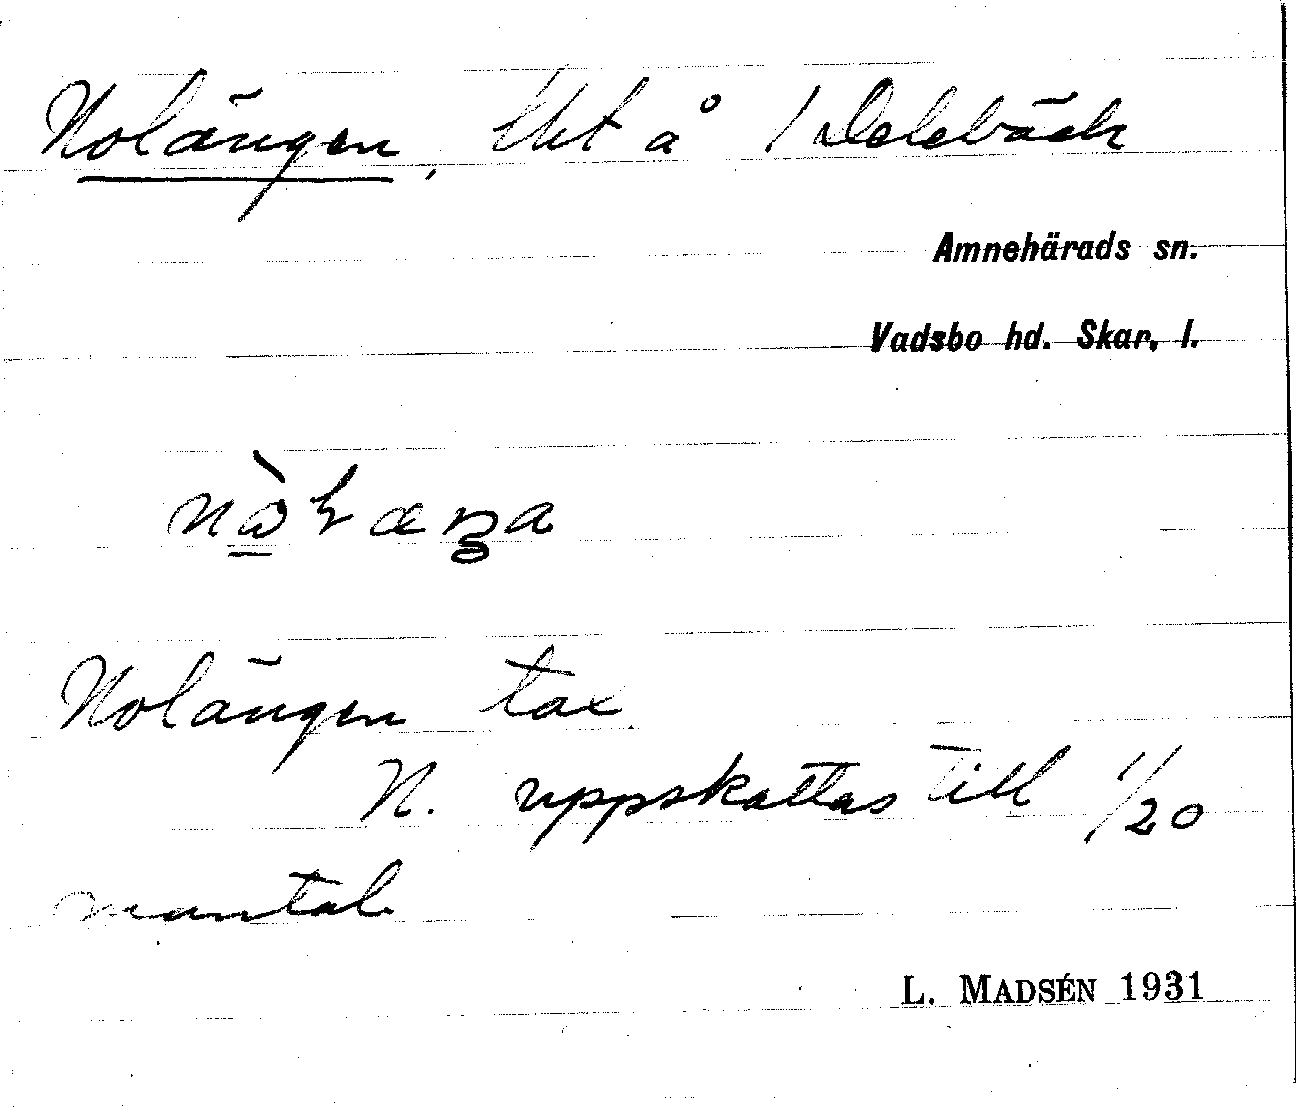 Nolängen, lht å 1 Delebäck
Amnehärads sn.
Vadsbo hd. Skar. l.
Nolängen tax
N. uppskattas till 1/20
mantal
L. MADSÉN 1931